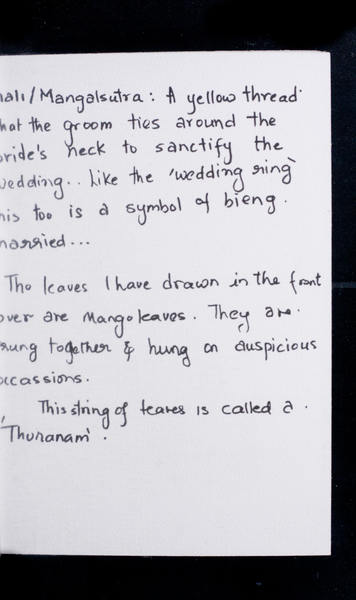 hali/Mangalsutra: A yellow thread
hat the groom ties around the
bride's neck to sanctify the
wedding.. Like the 'wedding ring'
his too is a symbol of bieng
married...
The leaves I have drawn in the front
over are Mango leaves. They are
rung together & hung on auspicious
occassions.
This string of leaves is called a
'Thoranam'.